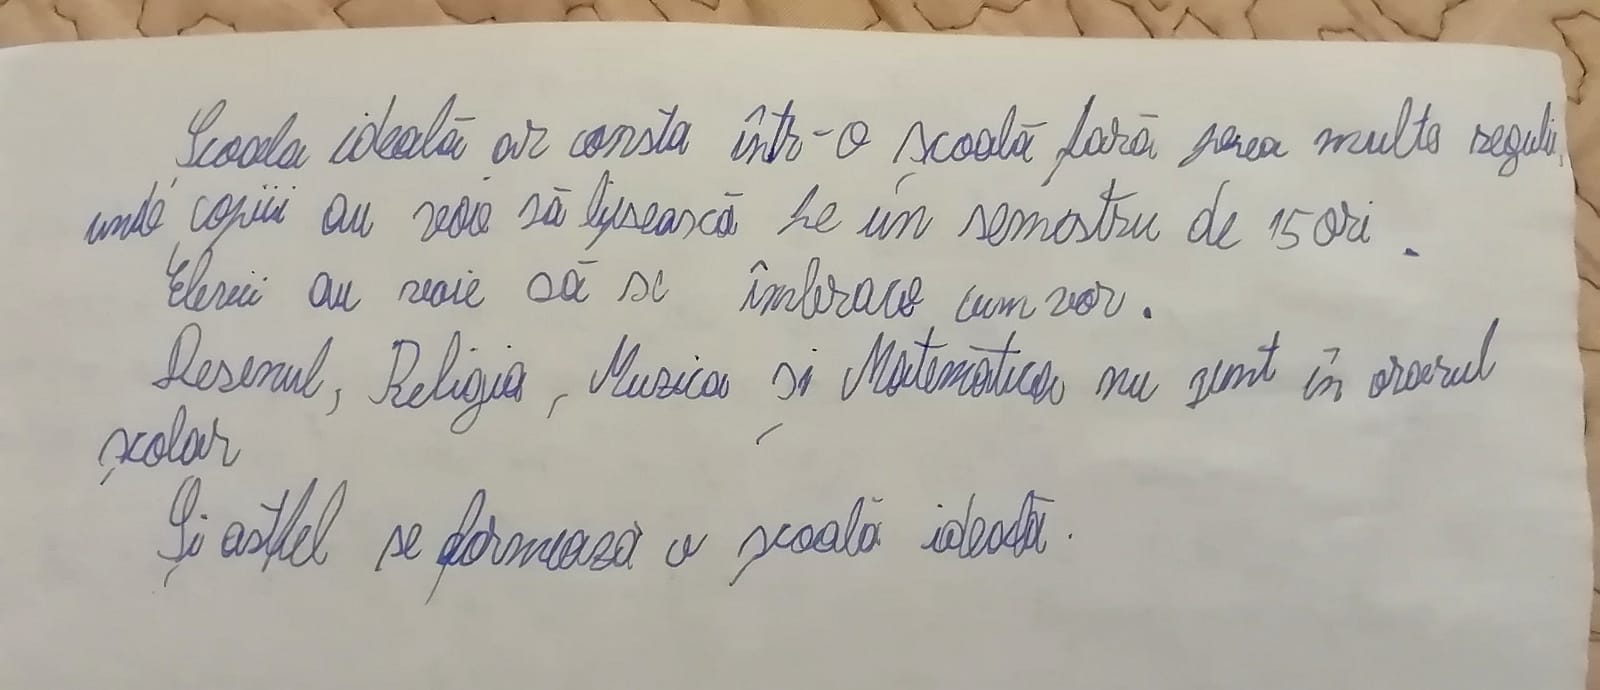 Școala ideală ar consta într-o școală fară prea multe reguli,
unde copiii au voie să lipsească pe un semestru de 15 ori.
Elevii au voie să se îmbrace cum vor.
Desenul, Religia, Muzica și Matematica nu sunt în orarul
școlar
Și astfel se formează o școală ideală.